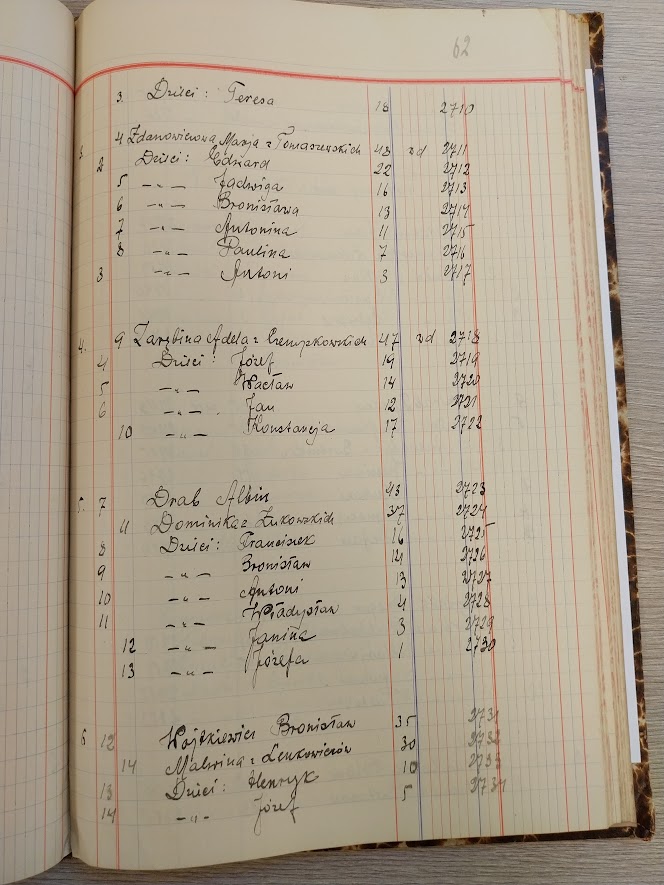 62
3. Dzieci: Teresa 18 2710
3. 4 Zdanowiczowa Marja z Tomaszewskich 48 wd 2711
2 Dzieci: Edward 22 2712
5 —"— Jadwiga 16 2713
6 —"— Bronisława 13 2714
7 —"— Antonina 11 2715
8 —"— Paulina 7 2716
3 —"— Antoni 3 2717
4. 9 Zarębina Adela z 47 wd 2718
4 Dzieci: Józef 19 2719
5 —"— Wacław 14 2720
6 —"— Jan 12 2721
10 —"— Konstancja 17 2722
5. 7 Drab Albin 43 2723
11 Dominika z Żukowskich 37 2724
8 Dzieci: Franciszek 16 2725
9 —"— Bronisław 14 2726
10 —"— Antoni 13 2727
11 —"— Władysław 4 2728
12 —"— Janina 3 2729
13 —"— Józefa 1 2730
6 12 Wojtkiewicz Bronisław 35 2731
14 Malwina z Lenkowiczów 30 2732
13 Dzieci: Henryk 10 2733
14 —"— Józef 5 2734